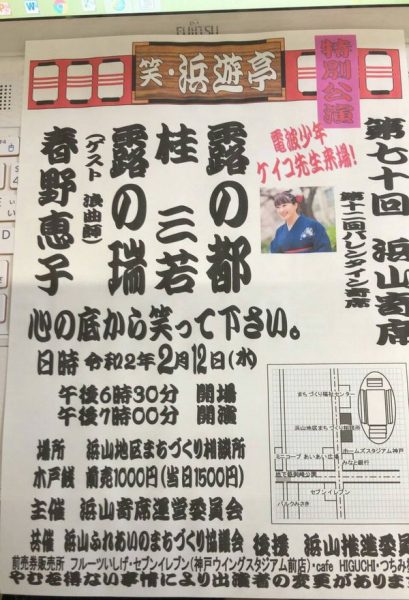 笑・浜遊亭
特別公演
第七十回 浜山寄席
第十二回バレンタイン寄席
電波少年
ケイコ先生来場!
露の都
桂 三若
露の瑞
(ゲスト 浪曲師)
春野恵子
心の底から笑って下さい。
日時 令和2年2月12日(水)
午後6時30分 開場
午後7時00分 開演
場所 浜山地区まちづくり相談所
木戸銭 前売1000円(当日1500円)
主催 浜山寄席運営委員会
共催 浜山ふれあいのまちづくり協議会 後援 浜山推進委員
前売券販売所 フルーツいしげ・セブンイレブン(神戸ウイングスタジアム前店)・cafe HIGUCHI・つちみ
やむを得ない事情により出演者の変更があります
まちづくり福祉センター
浜山地区まちづくり相談所
ミニコープ あいあい広場
ホームズスタジアム神戸
みなと銀行
セブンイレブン